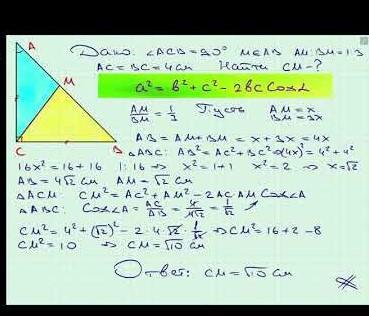 A
M
C
B
Дано: ∠ACB=90° M∈AB AM:BM=1:3
AC=BC=4см Найти CM-?
a²=b²+c²-2bc cosα
AM/BM=1/3 Пусть AM=x BM=3x
AB=AM+BM=x+3x=4x
△ABC: AB²=AC²+BC² ⇒(4x)²=4²+4²
16x²=16+16 |:16 ⇒ x²=1+1 x²=2 ⇒ x=√2
AB=4√2 см AM=√2 см
△ACM: CM²=AC²+AM²-2AC·AM cosα
△ABC: cosα=AC/AB=4/4√2=1/√2
CM²=4²+(√2)²-2·4·√2·1/√2 ⇒CM²=16+2-8
CM²=10 ⇒ CM=√10 см
Ответ: CM=√10 см